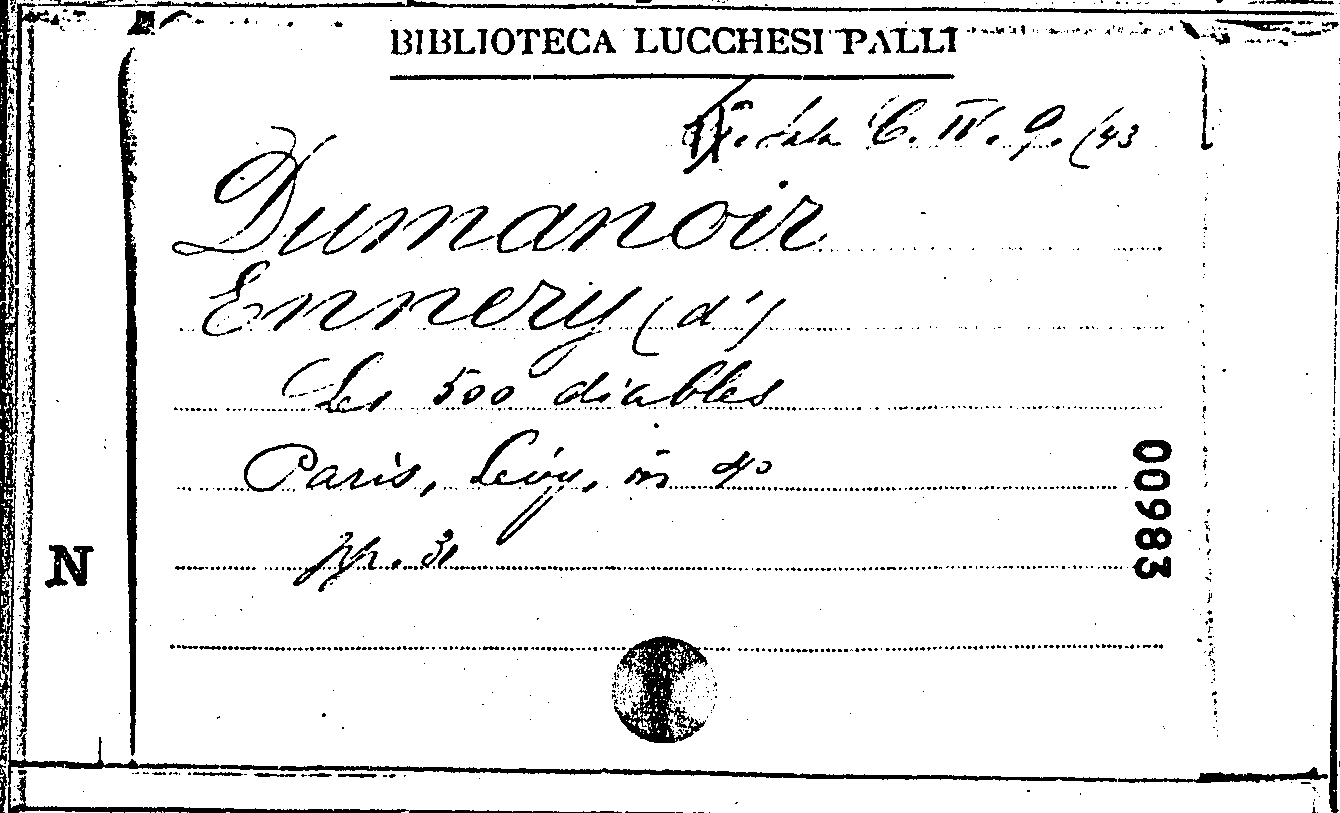 BIBLIOTECA LUCCHESI PALLI
Sala C. IV. 9. (43
Dumanoir
Ennery (d')
Les 500 diables
Paris, Levy, in 4º
pp. 31
N
00983